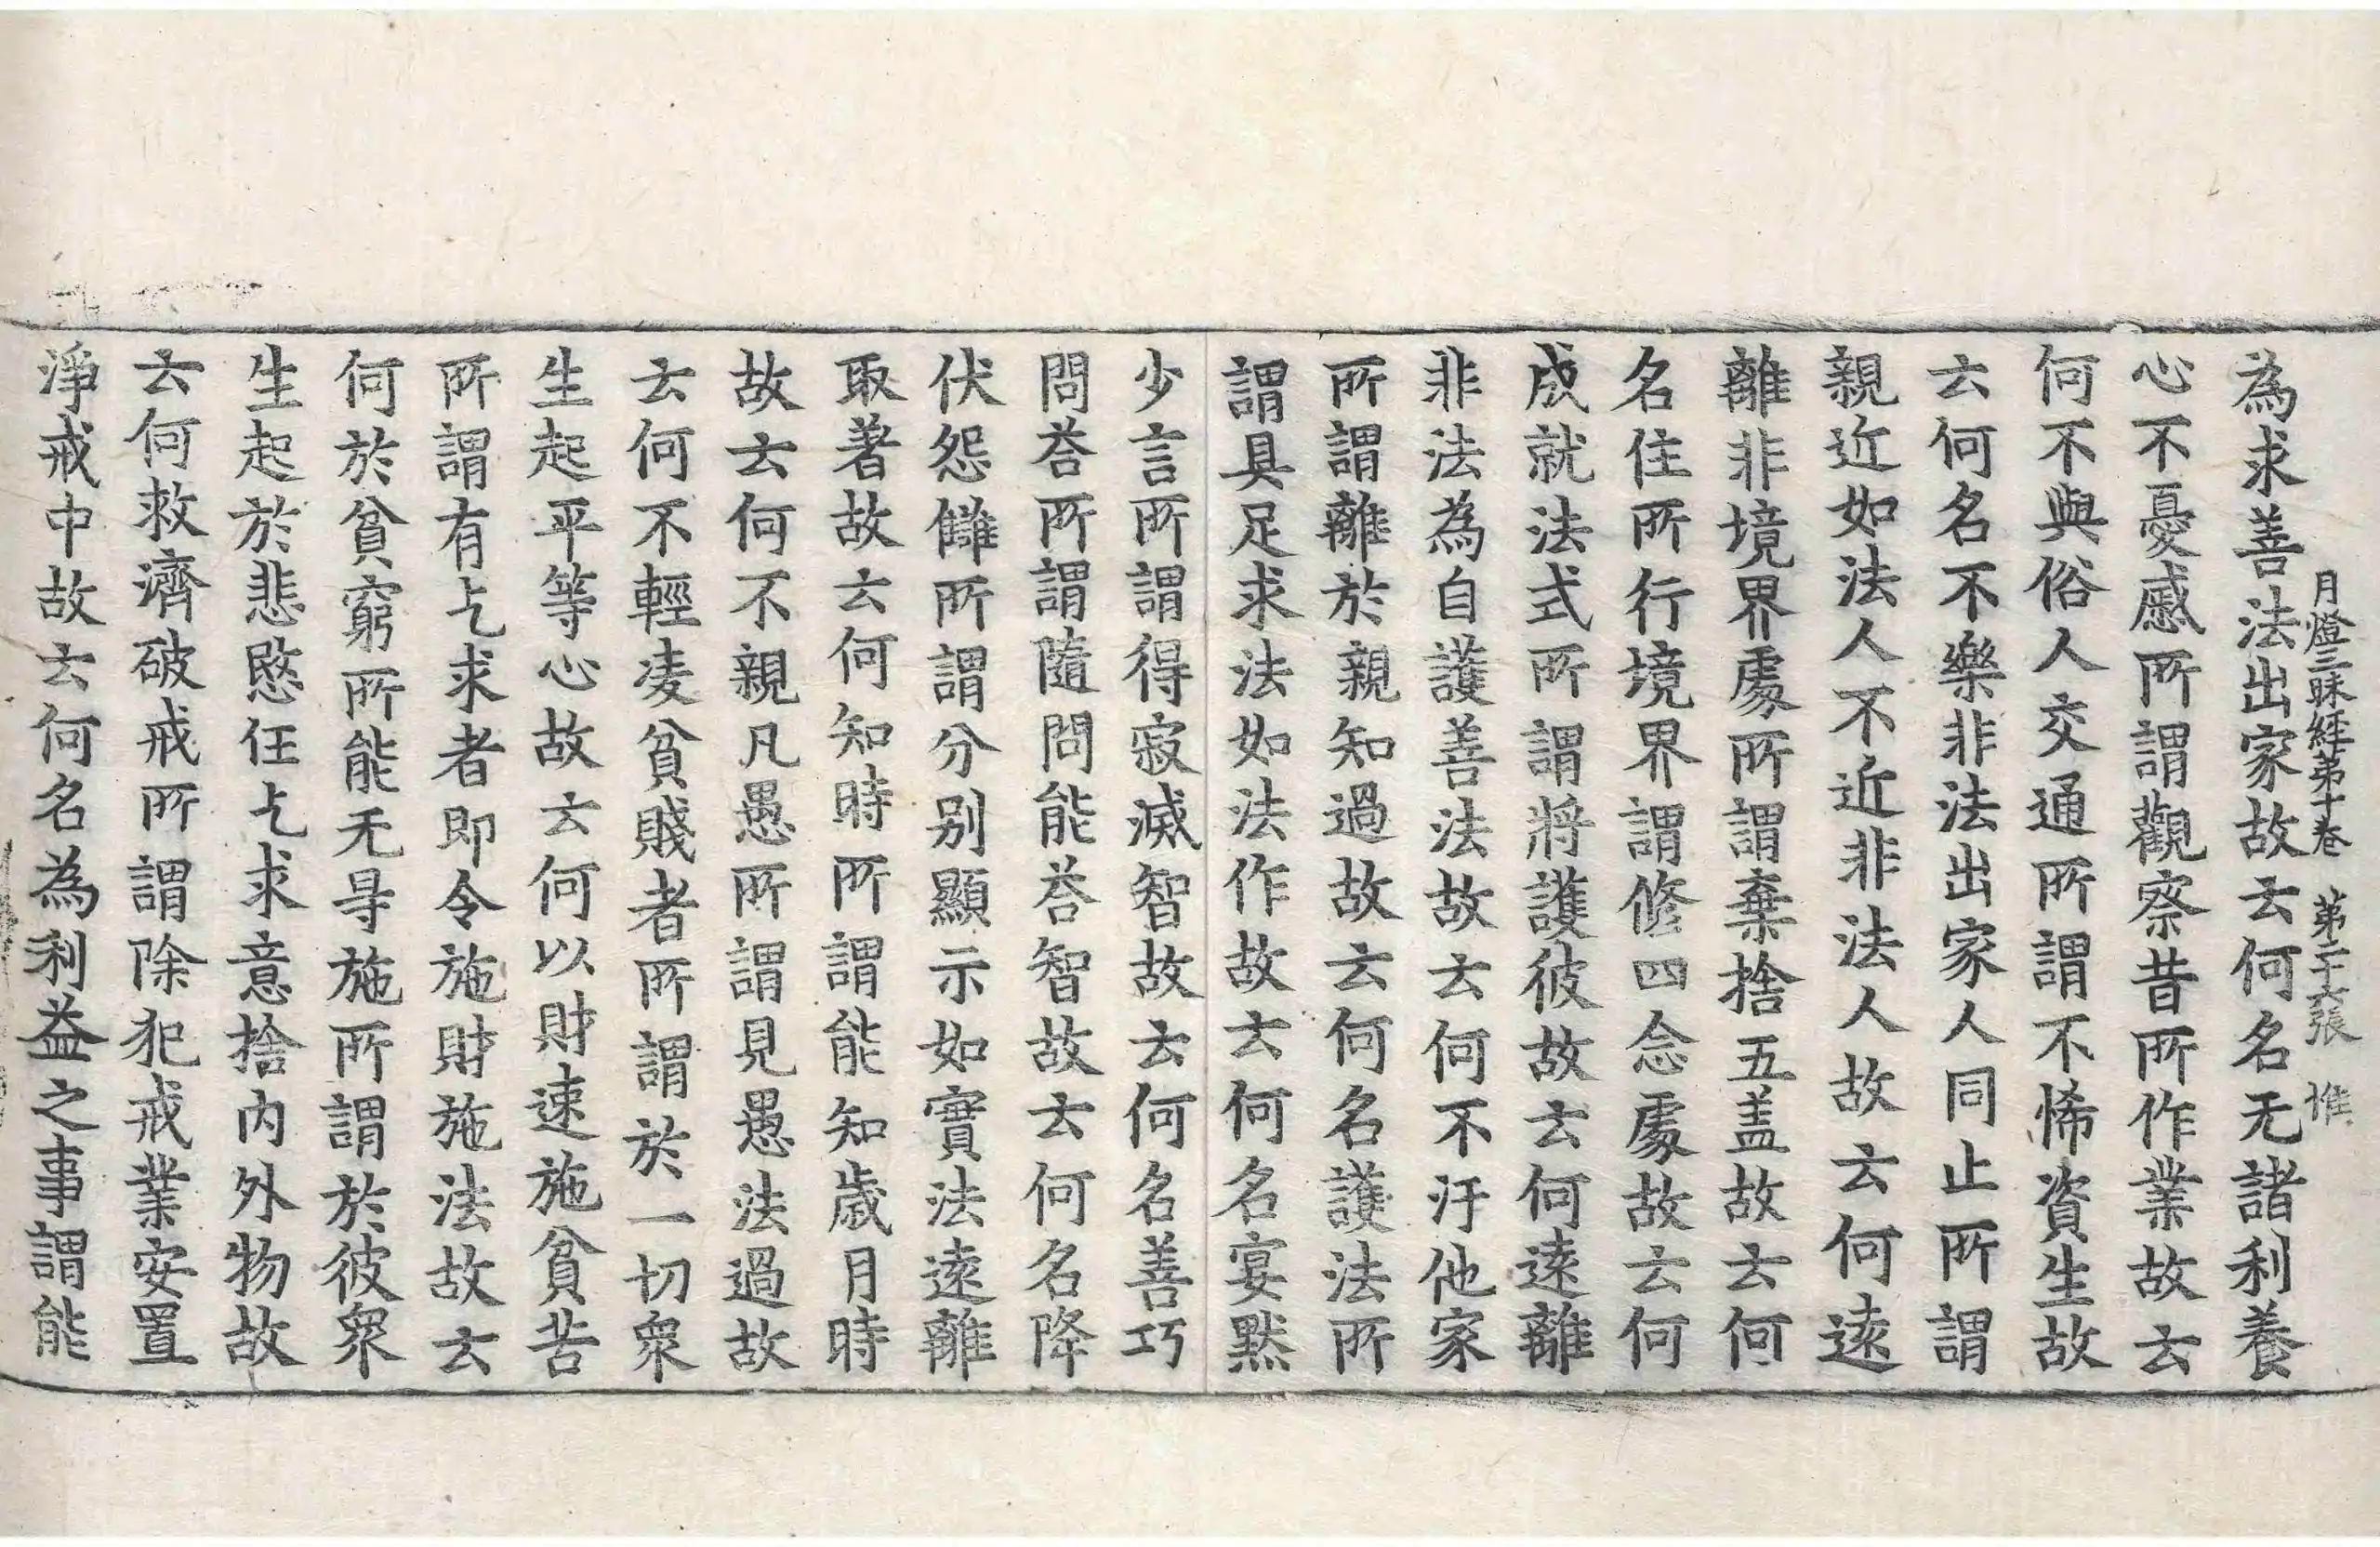 月燈三昧經第十卷 第二十六張 惟
為求善法出家故云何名无諸利養
心不憂慼所謂觀察昔所作業故云
何不與俗人交通所謂不悕資生故
云何名不樂非法出家人同止所謂
親近如法人不近非法人故云何遠
離非境界處所謂棄捨五盖故云何
名住所行境界謂修四念處故云何
成就法式所謂將護彼故云何遠離
非法為自護善法故云何不汙他家
所謂離於親知過故云何名護法所
謂具足求法如法作故云何名宴黙
少言所謂得寂滅智故云何名善巧
問荅所謂隨問能荅智故云何名降
伏怨讎所謂分别顯示如實法遠離
取著故云何知時所謂能知歲月時
故云何不親凡愚所謂見愚法過故
云何不輕凌貧賤者所謂於一切衆
生起平等心故云何以財速施貧苦
所謂有乞求者即令施財施法故云
何於貧窮所能无㝵施所謂於彼衆
生起於悲愍任乞求意捨内外物故
云何救濟破戒所謂除犯戒業安置
淨戒中故云何名為利益之事謂能